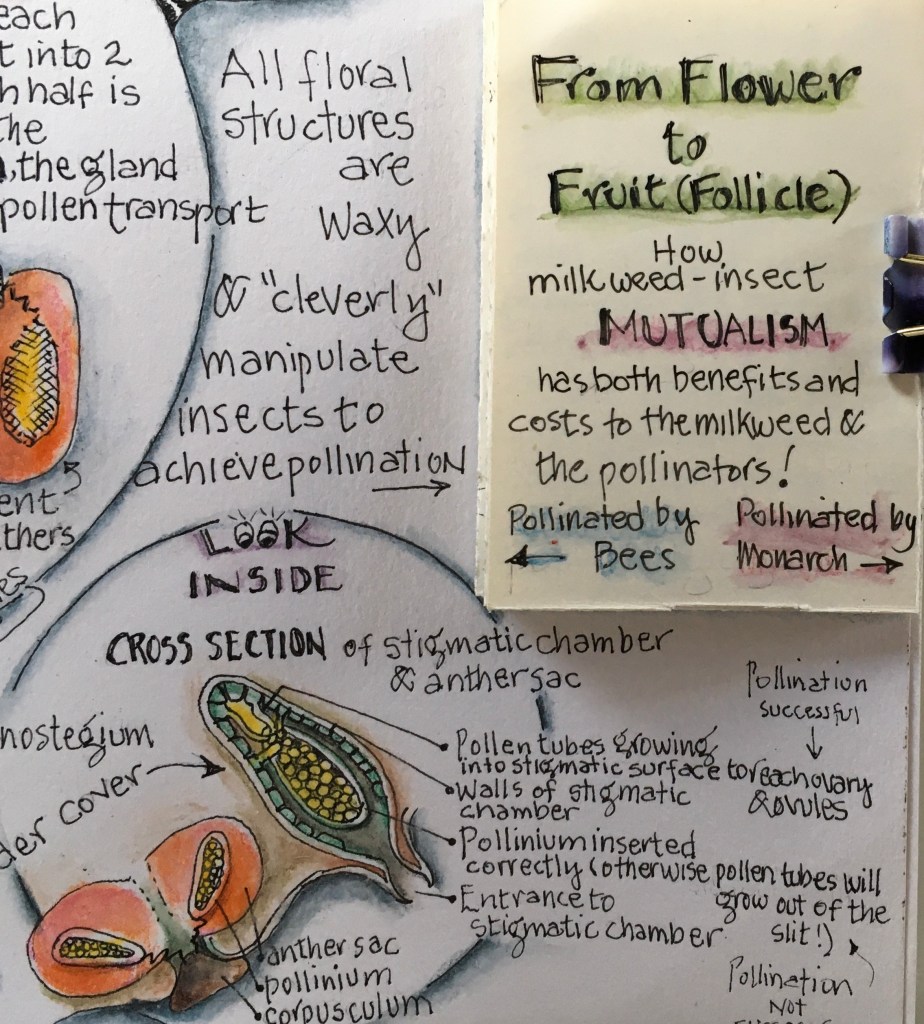 each
t into 2
h half is
the
, the gland
pollen transport
ent
thers
All floral
structures
are
waxy
& "cleverly"
manipulate
insects to
achieve pollination
From Flower
to
Fruit (Follicle)
How
milkweed - insect
MUTUALISM
has both benefits and
costs to the milkweed &
the pollinators!
Pollinated by
Bees
Pollinated by
Monarch
LOOK
INSIDE
CROSS SECTION of stigmatic chamber
& anther sac
nostegium
der cover
Pollen tubes growing
into stigmatic surface to reach ovary
& ovules
Walls of stigmatic
chamber
Pollinium inserted
correctly (otherwise pollen tubes will
grow out of the
slit!)
Entrance to
stigmatic chamber
Pollination
successful
Pollination
NOT
anther sac
pollinium
corpusculum